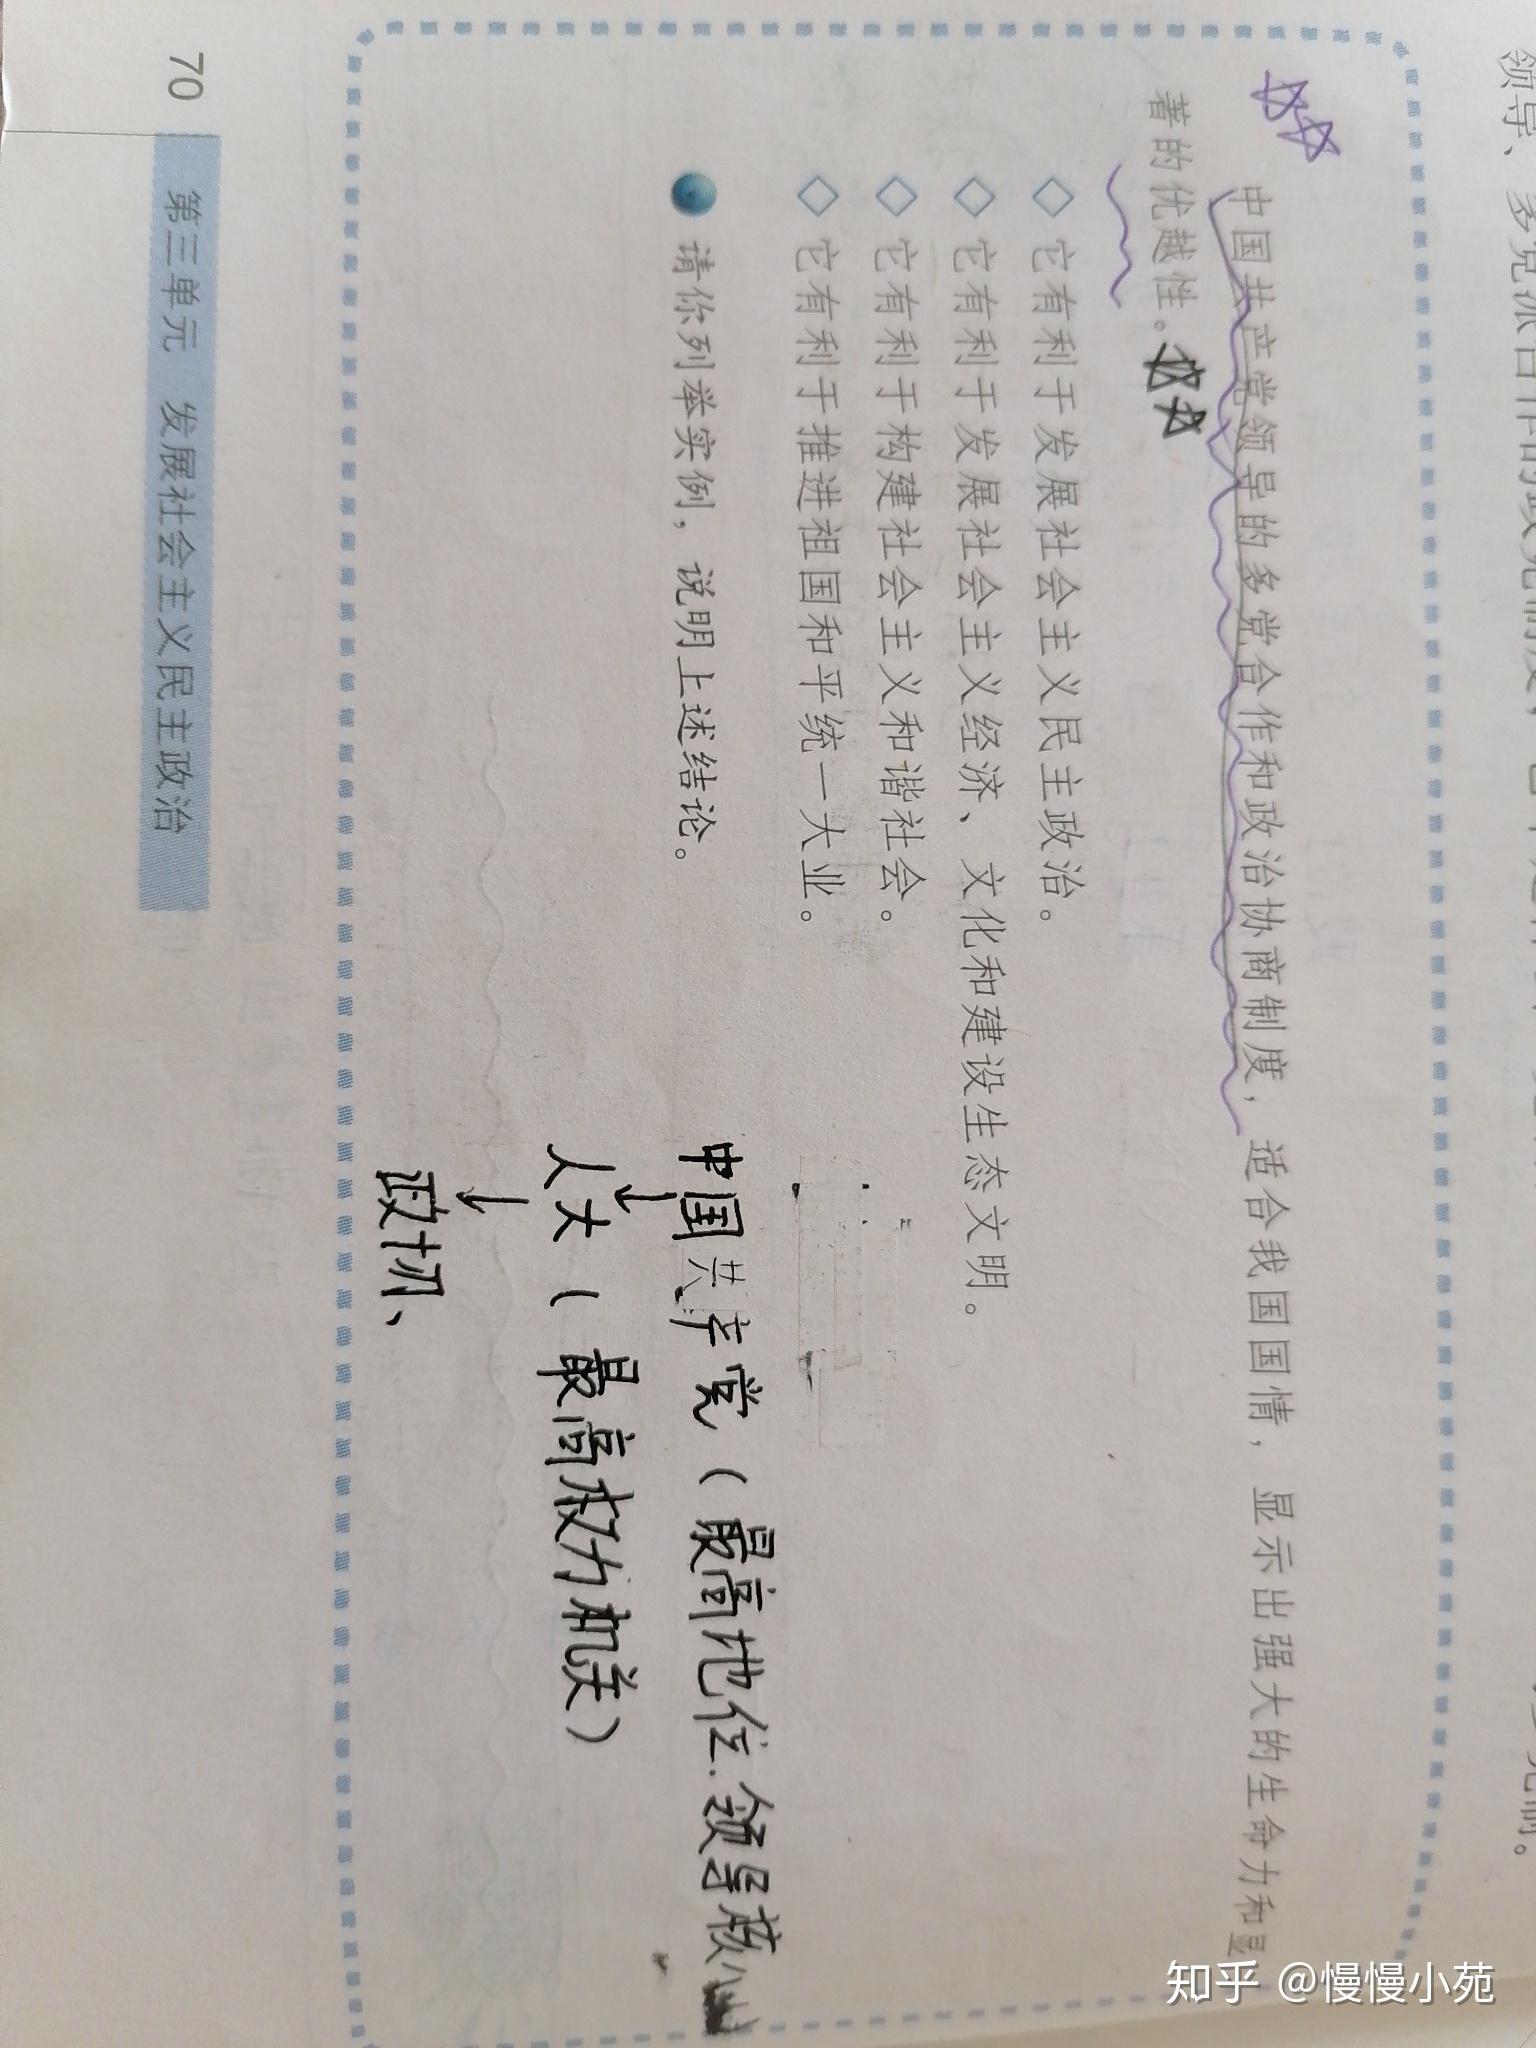 中国共产党领导的多党合作和政治协商制度，适合我国国情，显示出强大的生命力和显
著的优越性。
◇ 它有利于发展社会主义民主政治。
◇ 它有利于发展社会主义经济、文化和建设生态文明。
◇ 它有利于构建社会主义和谐社会。
◇ 它有利于推进祖国和平统一大业。
● 请你列举实例，说明上述结论。
中国共产党（最高地位.领导核心
↓
人大（最高权力机关）
↓
政协、
70 第三单元 发展社会主义民主政治
知乎 @慢慢小苑